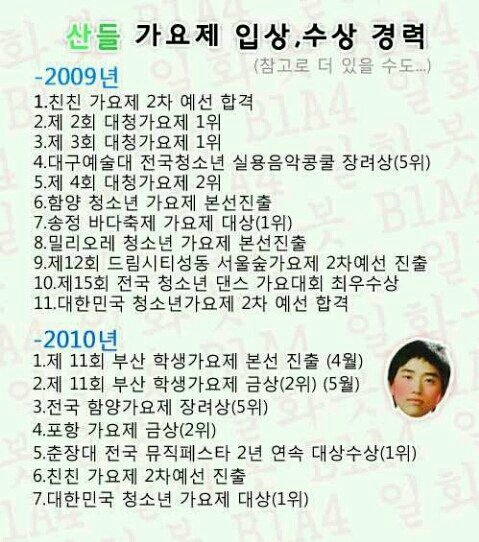 산들 가요제 입상,수상 경력
(참고로 더 있을 수도...)
-2009년
1.친친 가요제 2차 예선 합격
2.제 2회 대청가요제 1위
3.제 3회 대청가요제 1위
4.대구예술대 전국청소년 실용음악콩쿨 장려상(5위)
5.제 4회 대청가요제 2위
6.함양 청소년 가요제 본선진출
7.송정 바다축제 가요제 대상(1위)
8.밀리오레 청소년 가요제 본선진출
9.제12회 드림시티성동 서울숲가요제 2차예선 진출
10.제15회 전국 청소년 댄스 가요대회 최우수상
11.대한민국 청소년가요제 2차 예선 합격
-2010년
1.제 11회 부산 학생가요제 본선 진출 (4월)
2.제 11회 부산 학생가요제 금상(2위) (5월)
3.전국 함양가요제 장려상(5위)
4.포항 가요제 금상(2위)
5.춘장대 전국 뮤직페스타 2년 연속 대상수상(1위)
6.친친 가요제 2차예선 진출
7.대한민국 청소년 가요제 대상(1위)
B1A4
B1A4
B1A4
B1A4